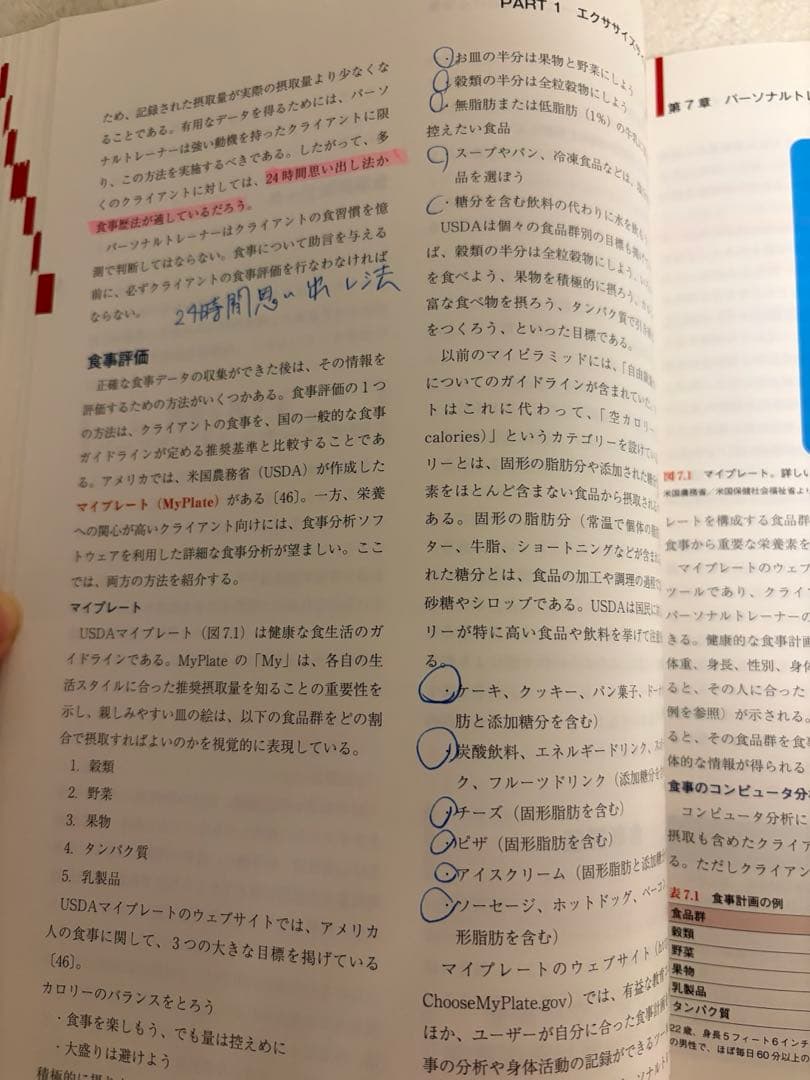 PART 1 エクササイズサイ
ため、記録された摂取量が実際の摂取量より少なくな
ることである。有用なデータを得るためには、パーソ
ナルトレーナーは強い動機を持ったクライアントに限
り、この方法を実施するべきである。したがって、多
くのクライアントに対しては、24時間思い出し法か
食事歴法が適しているだろう。
パーソナルトレーナーはクライアントの食習慣を憶
測で判断してはならない。食事について助言を与える
前に、必ずクライアントの食事評価を行なわなければ
ならない。
24時間思い出し法
食事評価
正確な食事データの収集ができた後は、その情報を
評価するための方法がいくつかある。食事評価の1つ
の方法は、クライアントの食事を、国の一般的な食事
ガイドラインが定める推奨基準と比較することであ
る。アメリカでは、米国農務省（USDA）が作成した
マイプレート（MyPlate）がある〔46〕。一方、栄養
への関心が高いクライアント向けには、食事分析ソフ
トウェアを利用した詳細な食事分析が望ましい。ここ
では、両方の方法を紹介する。
マイプレート
USDAマイプレート（図7.1）は健康な食生活のガ
イドラインである。MyPlate の「My」は、各自の生
活スタイルに合った推奨摂取量を知ることの重要性を
示し、親しみやすい皿の絵は、以下の食品群をどの割
合で摂取すればよいのかを視覚的に表現している。
1. 穀類
2. 野菜
3. 果物
4. タンパク質
5. 乳製品
USDAマイプレートのウェブサイトでは、アメリカ
人の食事に関して、3つの大きな目標を掲げている
〔46〕。
カロリーのバランスをとろう
・食事を楽しもう、でも量は控えめに
・大盛りは避けよう
積極的に摂
・お皿の半分は果物と野菜にしよう
・穀類の半分は全粒穀物にしよう
・無脂肪または低脂肪（1%）の牛乳
控えたい食品
・スープやパン、冷凍食品などは、
品を選ぼう
・糖分を含む飲料の代わりに水を飲
USDAは個々の食品群別の目標も
ば、穀類の半分は全粒穀物にしよう、
を食べよう、果物を積極的に摂ろう、
富な食べ物を摂ろう、タンパク質で
をつくろう、といった目標である。
以前のマイピラミッドには、「自由
についてのガイドラインが含まれていた
トはこれに代わって、「空カロリー
calories）」というカテゴリーを設けてい
リーとは、固形の脂肪分や添加された糖
素をほとんど含まない食品から摂取される
ある。固形の脂肪分（常温で個体の
ター、牛脂、ショートニングなどが含ま
れた糖分とは、食品の加工や調理の過程
砂糖やシロップである。USDAは国民に
リーが特に高い食品や飲料を挙げて
る。
・ケーキ、クッキー、パン菓子、ドー
肪と添加糖分を含む）
・炭酸飲料、エネルギードリンク、ス
ク、フルーツドリンク（添加糖分を
・チーズ（固形脂肪を含む）
・ピザ（固形脂肪を含む）
・アイスクリーム（固形脂肪と添加糖
・ソーセージ、ホットドッグ、ベーコ
形脂肪を含む）
マイプレートのウェブサイト
ChooseMyPlate.gov）では、有益な教育
ほか、ユーザーが自分に合った食事計画
事の分析や身体活動の記録ができるツー
第7章 パーソナルトレ
図7.1 マイプレート。詳しい
米国農務省／米国保健社会福祉省より
レートを構成する食品群
食事から重要な栄養素を
マイプレートのウェブ
ツールであり、クライ
パーソナルトレーナーの
きる。健康的な食事計画
体重、身長、性別、身体
ると、その人に合った
例を参照）が示される。
ると、その食品群を食事
体的な情報が得られる
食事のコンピュータ分析
コンピュータ分析に
摂取も含めたクライア
る。ただしクライアン
表7.1 食事計画の例
食品群
穀類
野菜
果物
乳製品
タンパク質
22歳、身長5フィート6インチ
の男性で、ほぼ毎日60分以上の